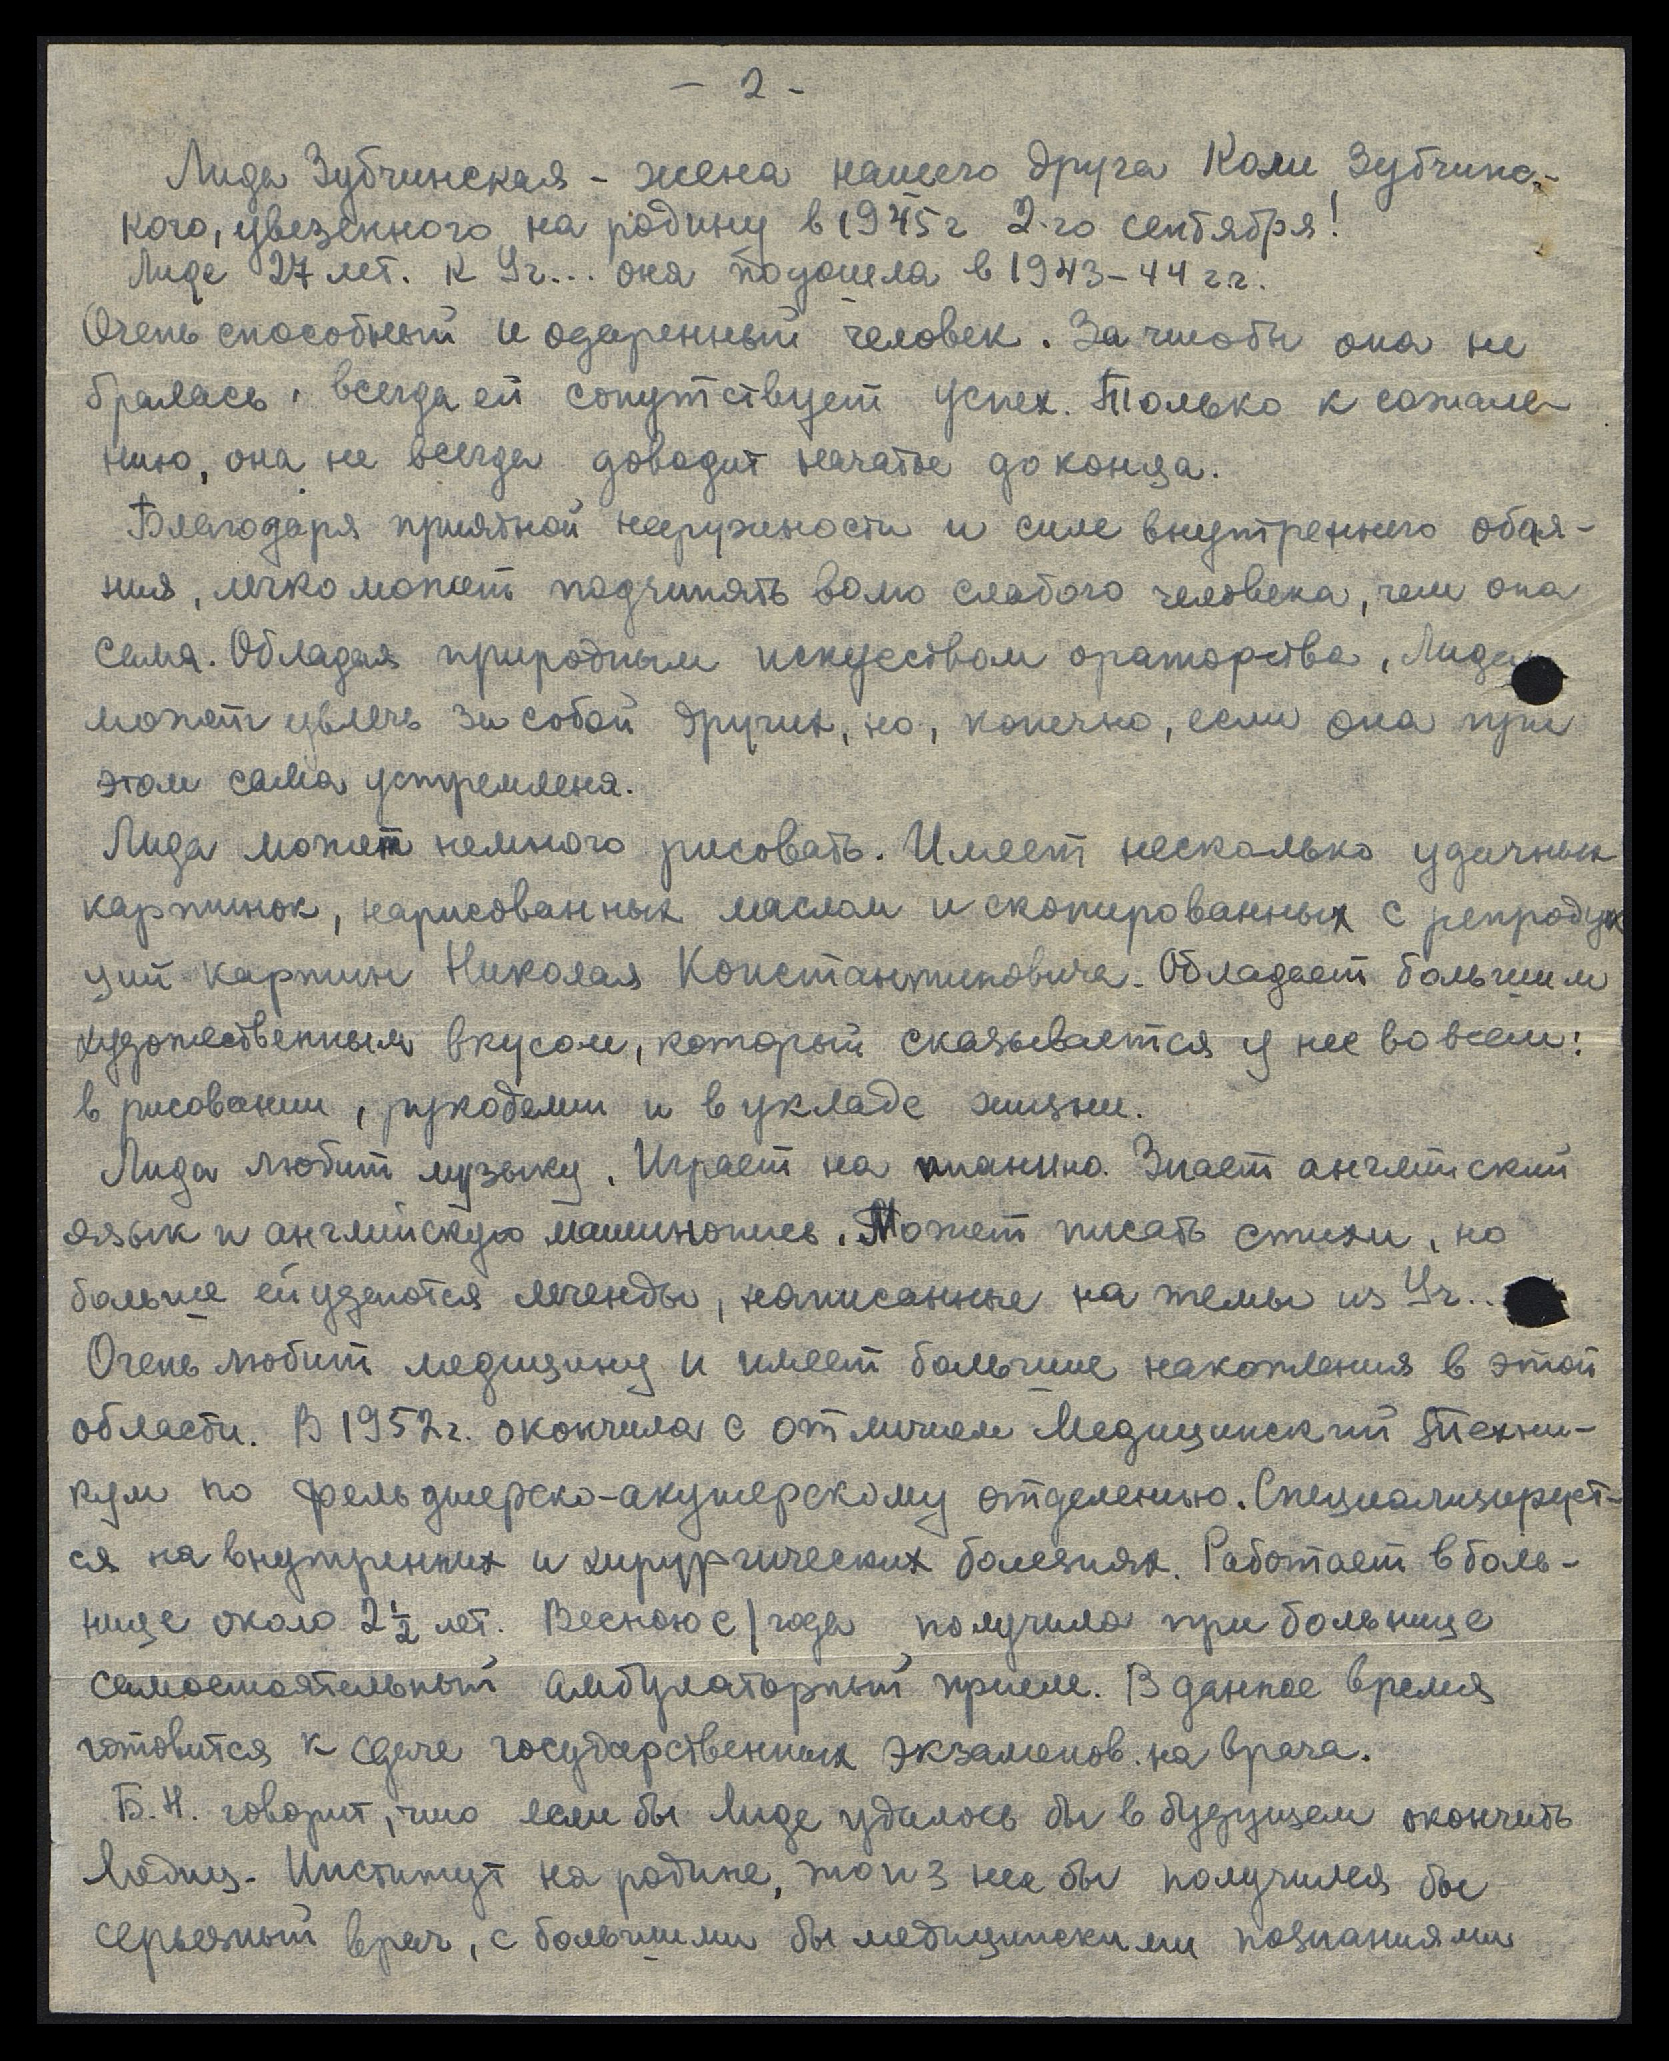 - 2 -
Лида Зубчинская - жена нашего друга Коли Зубчинс-
кого, увезенного на родину в 1945 г 2-го сентября!
Лиде 27 лет. К Уч... она подошла в 1943-44 г.г.
Очень способный и одаренный человек. За чтобы она не
бралась, всегда ей сопутствует успех. Только к сожале-
нию, она не всегда доводит начатое до конца.
Благодаря приятной наружности и силе внутреннего обая-
ния, легко может подчинять волю слабого человека, чем она
сама. Обладая природным искусством ораторства, Лида
может увлечь за собой других, но, конечно, если она при
этом сама устремлена.
Лида может немного рисовать. Имеет несколько удачных
картинок, нарисованных маслом и скопированных с репродук
ций картин Николая Константиновича. Обладает большим
художественным вкусом, который сказывается у нее во всем:
в рисовании, рукоделии и в укладе жизни.
Лида любит музыку. Играет на пианино. Знает английский
язык и английскую машинопись. Может писать стихи, но
больше ей удаются легенды, написанные на темы из Уч...
Очень любит медицину и имеет большие накопления в этой
области. В 1952 г. окончила с отличием Медицинский Техни-
кум по фельдшерско-акушерскому отделению. Специализирует-
ся на внутренних и хирургических болезнях. Работает в боль-
нице около 2½ лет. Весною с/года получила при больнице
самостоятельный амбулаторный прием. В данное время
готовится к сдаче государственных экзаменов на врача.
Б.Н. говорит, что если бы Лиде удалось бы в будущем окончить
Медиц. Институт на родине, то из нее бы получился бы
серьезный врач, с большими бы медицинскими познаниями